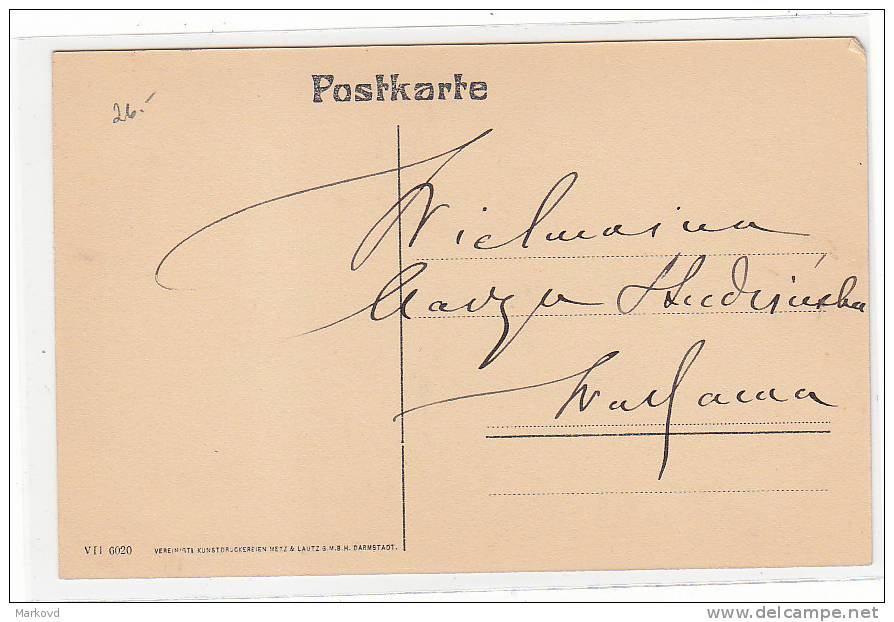 Postkarte
26.-
Wielmożna
Marya
Warszawa
VII 6020 VEREINIGTE KUNSTDRUCKEREIEN METZ & LAUTZ G.M.B.H. DARMSTADT.
Markovd
www.delcampe.net